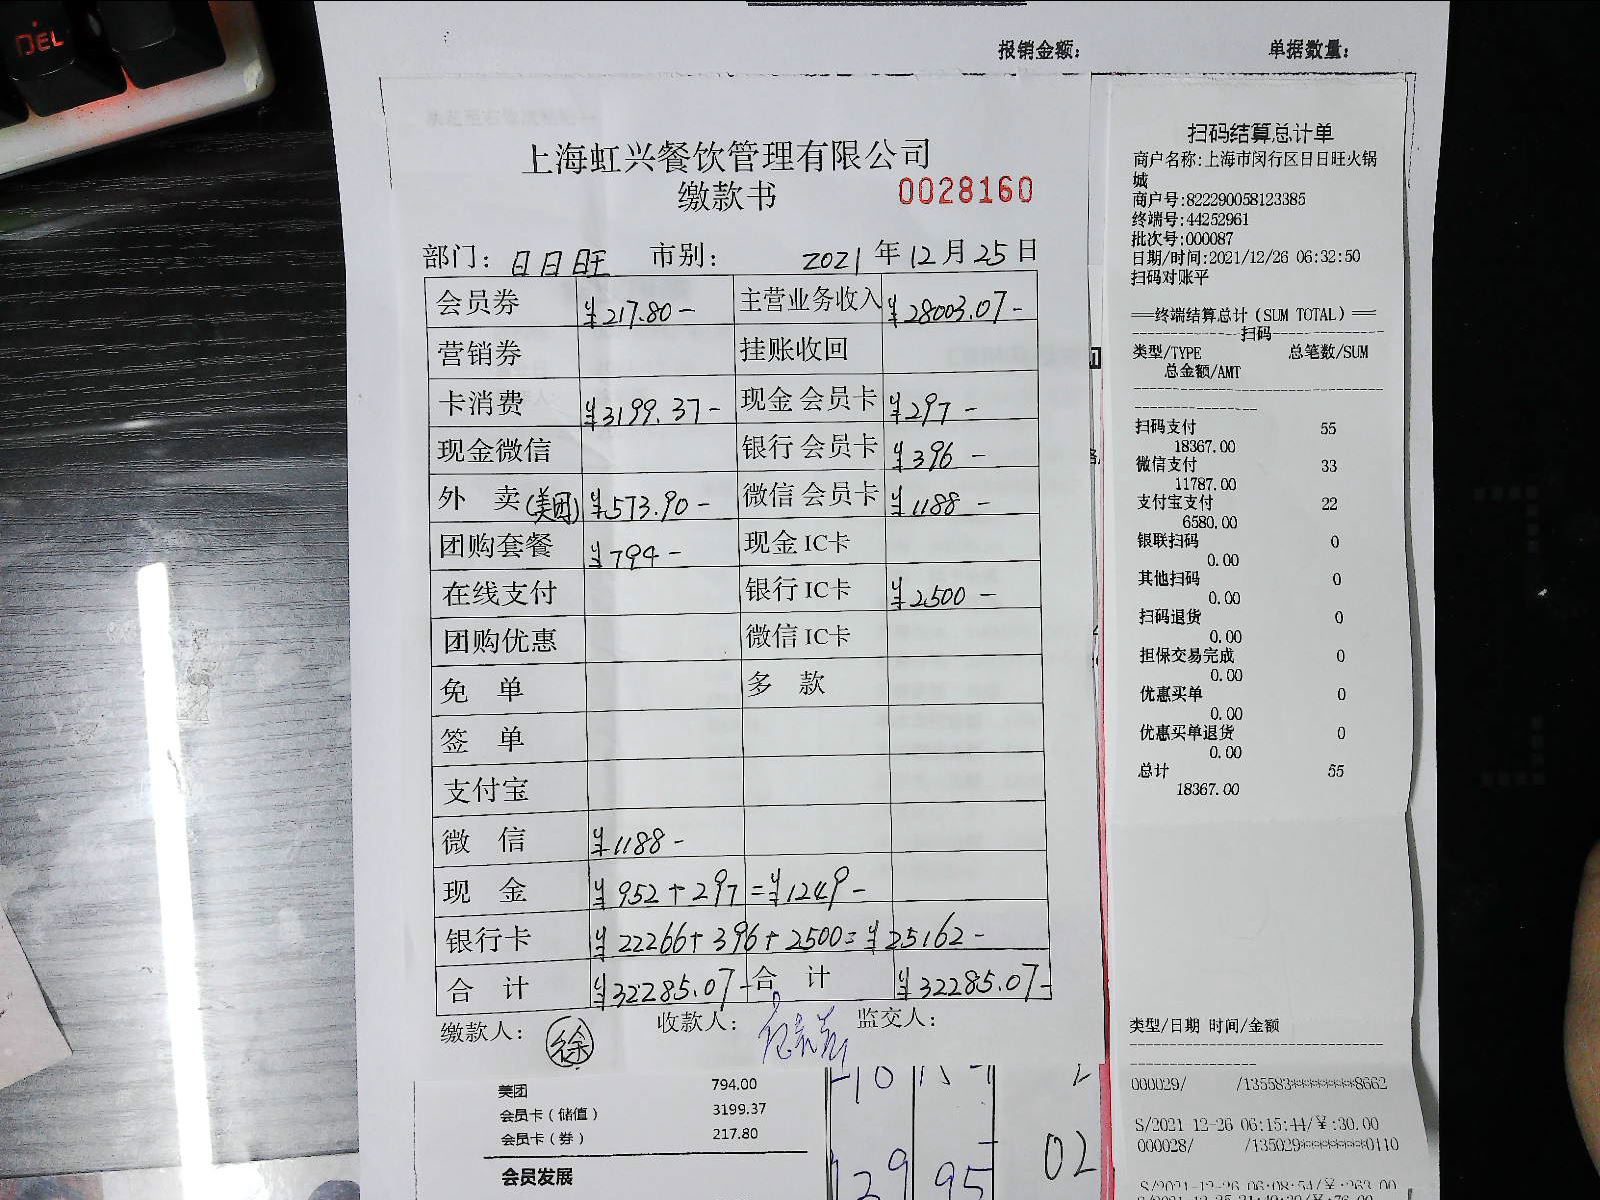 DEL
报销金额： 单据数量：
上海虹兴餐饮管理有限公司
缴款书 0028160
部门：日日旺 市别： 2021年12月25日
会员券 ¥217.80- 主营业务收入 ¥28003.07-
营销券 挂账收回
卡消费 ¥3199.37- 现金 会员卡 ¥297-
现金微信 银行 会员卡 ¥396-
外 卖(美团) ¥573.90- 微信 会员卡 ¥1188-
团购套餐 ¥794- 现金 IC卡
在线支付 银行 IC卡 ¥2500-
团购优惠 微信 IC卡
免 单 多 款
签 单
支付宝
微 信 ¥1188-
现 金 ¥952+297=¥1249-
银行卡 ¥22266+396+2500=¥25162-
合 计 ¥32285.07- 合 计 ¥32285.07-
缴款人：徐 收款人： 监交人：
美团 794.00
会员卡（储值） 3199.37
会员卡（券） 217.80
会员发展
02
扫码结算总计单
商户名称:上海市闵行区日日旺火锅
城
商户号:822290058123385
终端号:44252961
批次号:000087
日期/时间:2021/12/26 06:32:50
扫码对账平
==终端结算总计(SUM TOTAL)==
扫码
类型/TYPE 总笔数/SUM
总金额/AMT
扫码支付 55
18367.00
微信支付 33
11787.00
支付宝支付 22
6580.00
银联扫码 0
0.00
其他扫码 0
0.00
扫码退货 0
0.00
担保交易完成 0
0.00
优惠买单 0
0.00
优惠买单退货 0
0.00
总计 55
18367.00
类型/日期 时间/金额
000029/ /135583********8662
S/2021-12-26 06:15:44/¥:30.00
000028/ /135029********0110
S/2021-12-26 06:08:54/¥:263.00